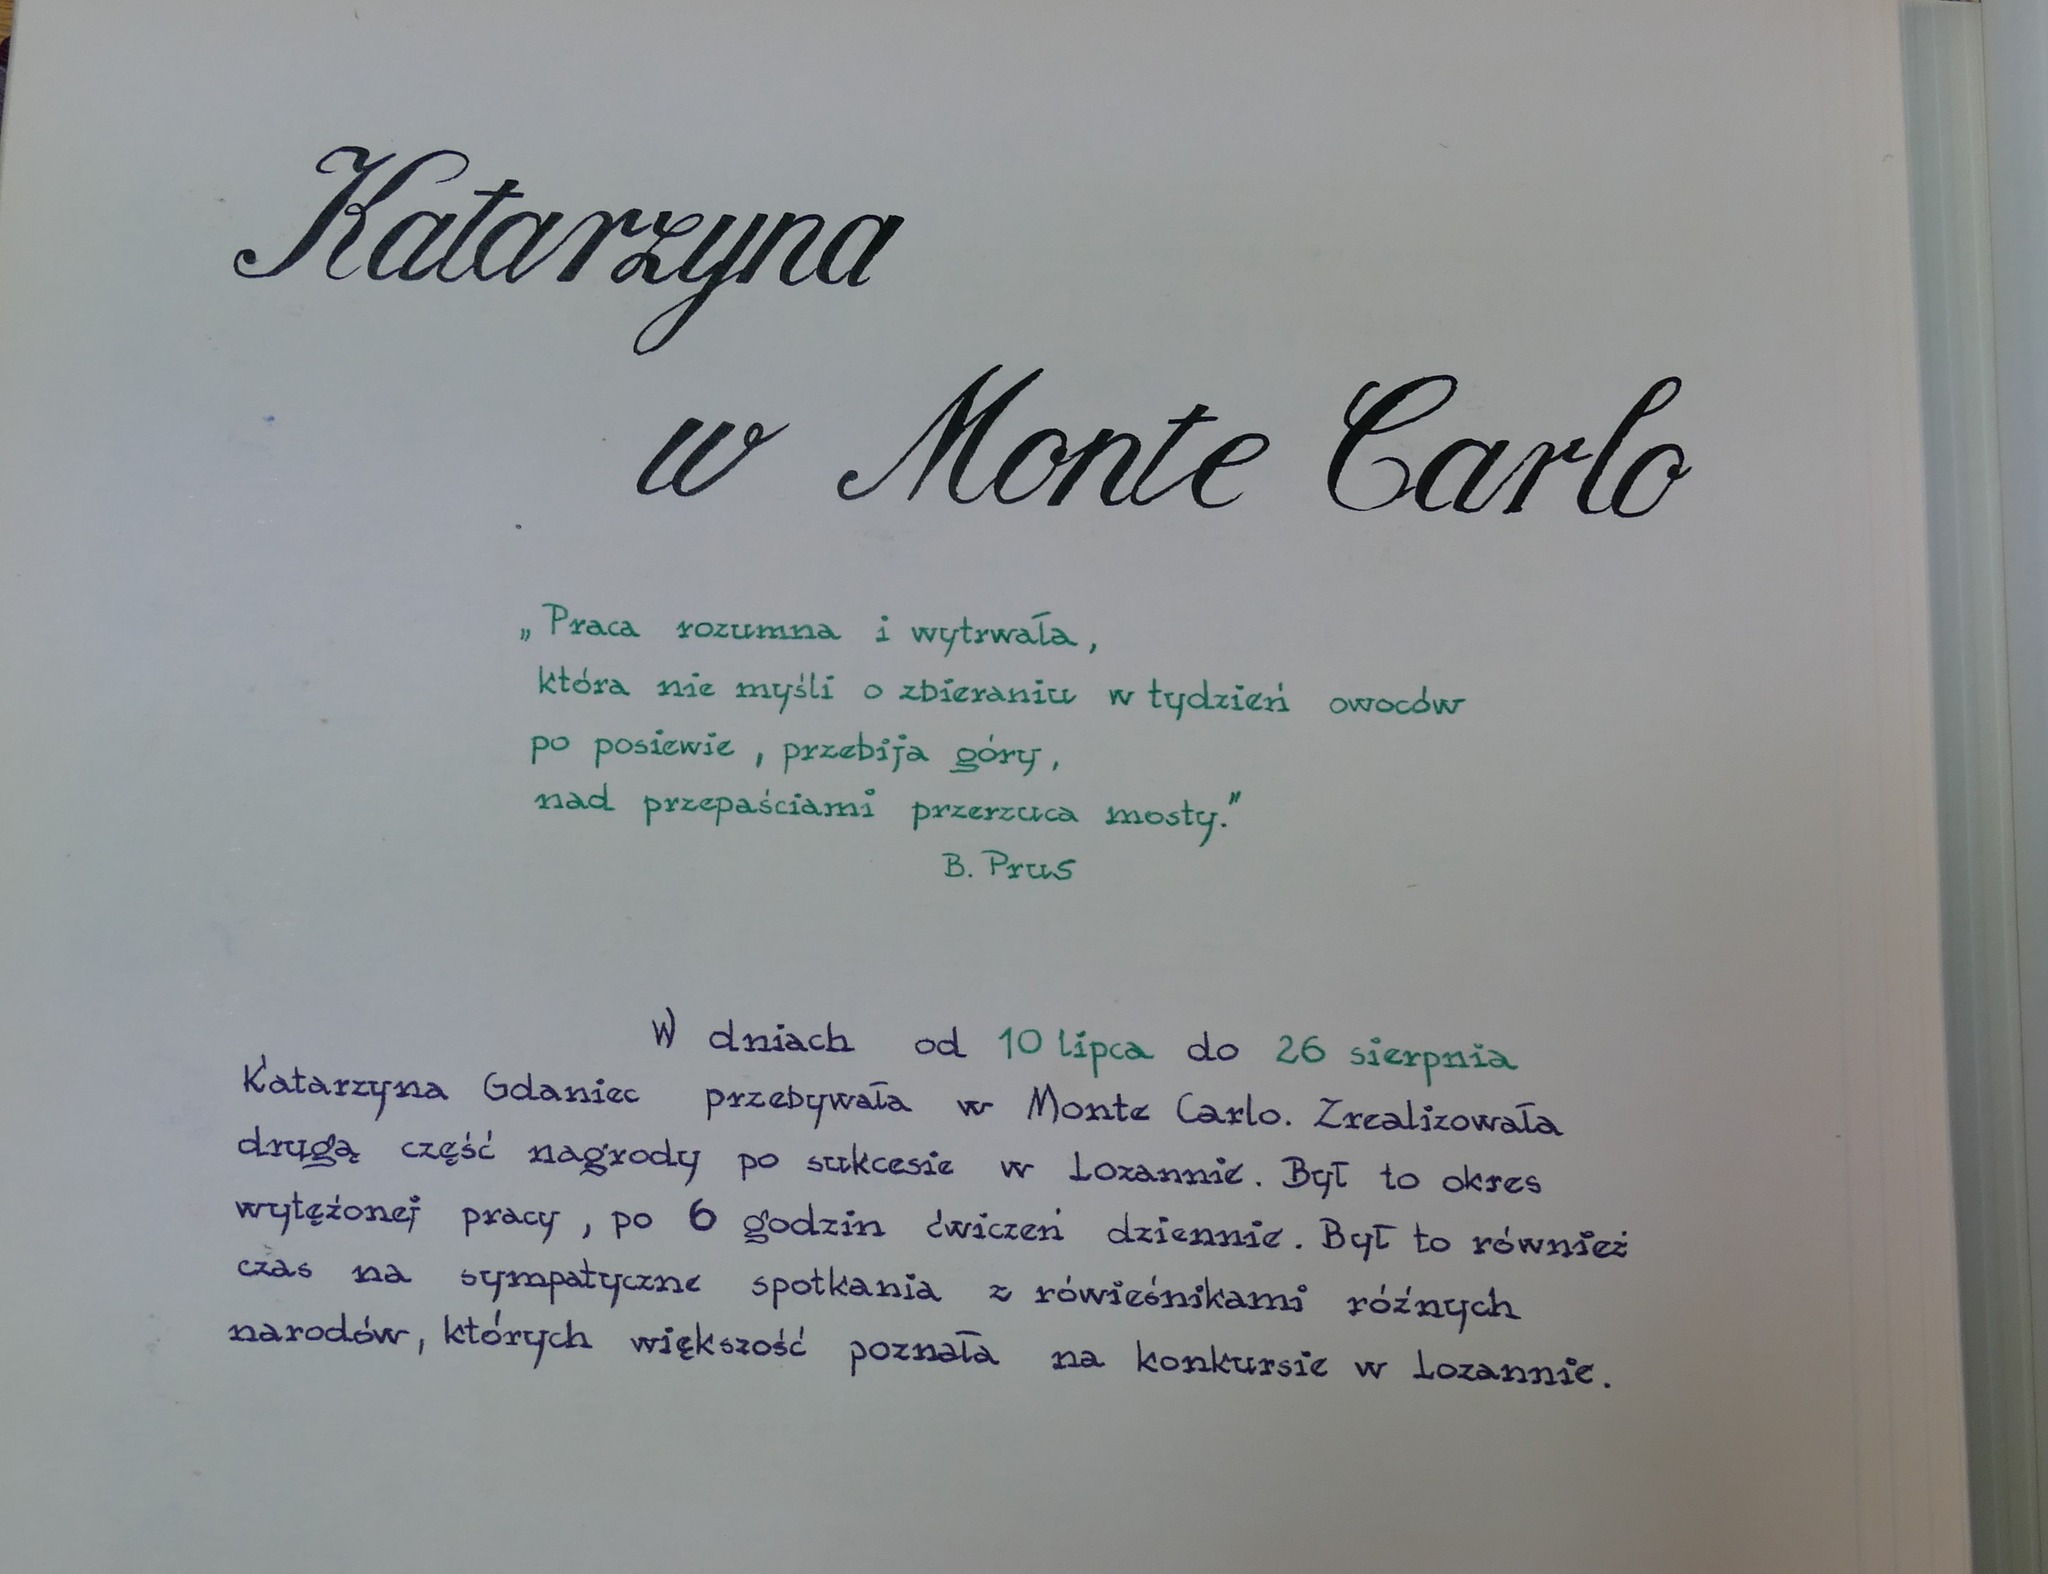 Katarzyna
w Monte Carlo
„Praca rozumna i wytrwała,
która nie myśli o zbieraniu w tydzień owoców
po posiewie, przebija góry,
nad przepaściami przerzuca mosty."
B. Prus
W dniach od 10 lipca do 26 sierpnia
Katarzyna Gdaniec przebywała w Monte Carlo. Zrealizowała
drugą część nagrody po sukcesie w Lozannie. Był to okres
wytężonej pracy, po 6 godzin ćwiczeń dziennie. Był to również
czas na sympatyczne spotkania z rówieśnikami różnych
narodów, których większość poznała na konkursie w Lozannie.